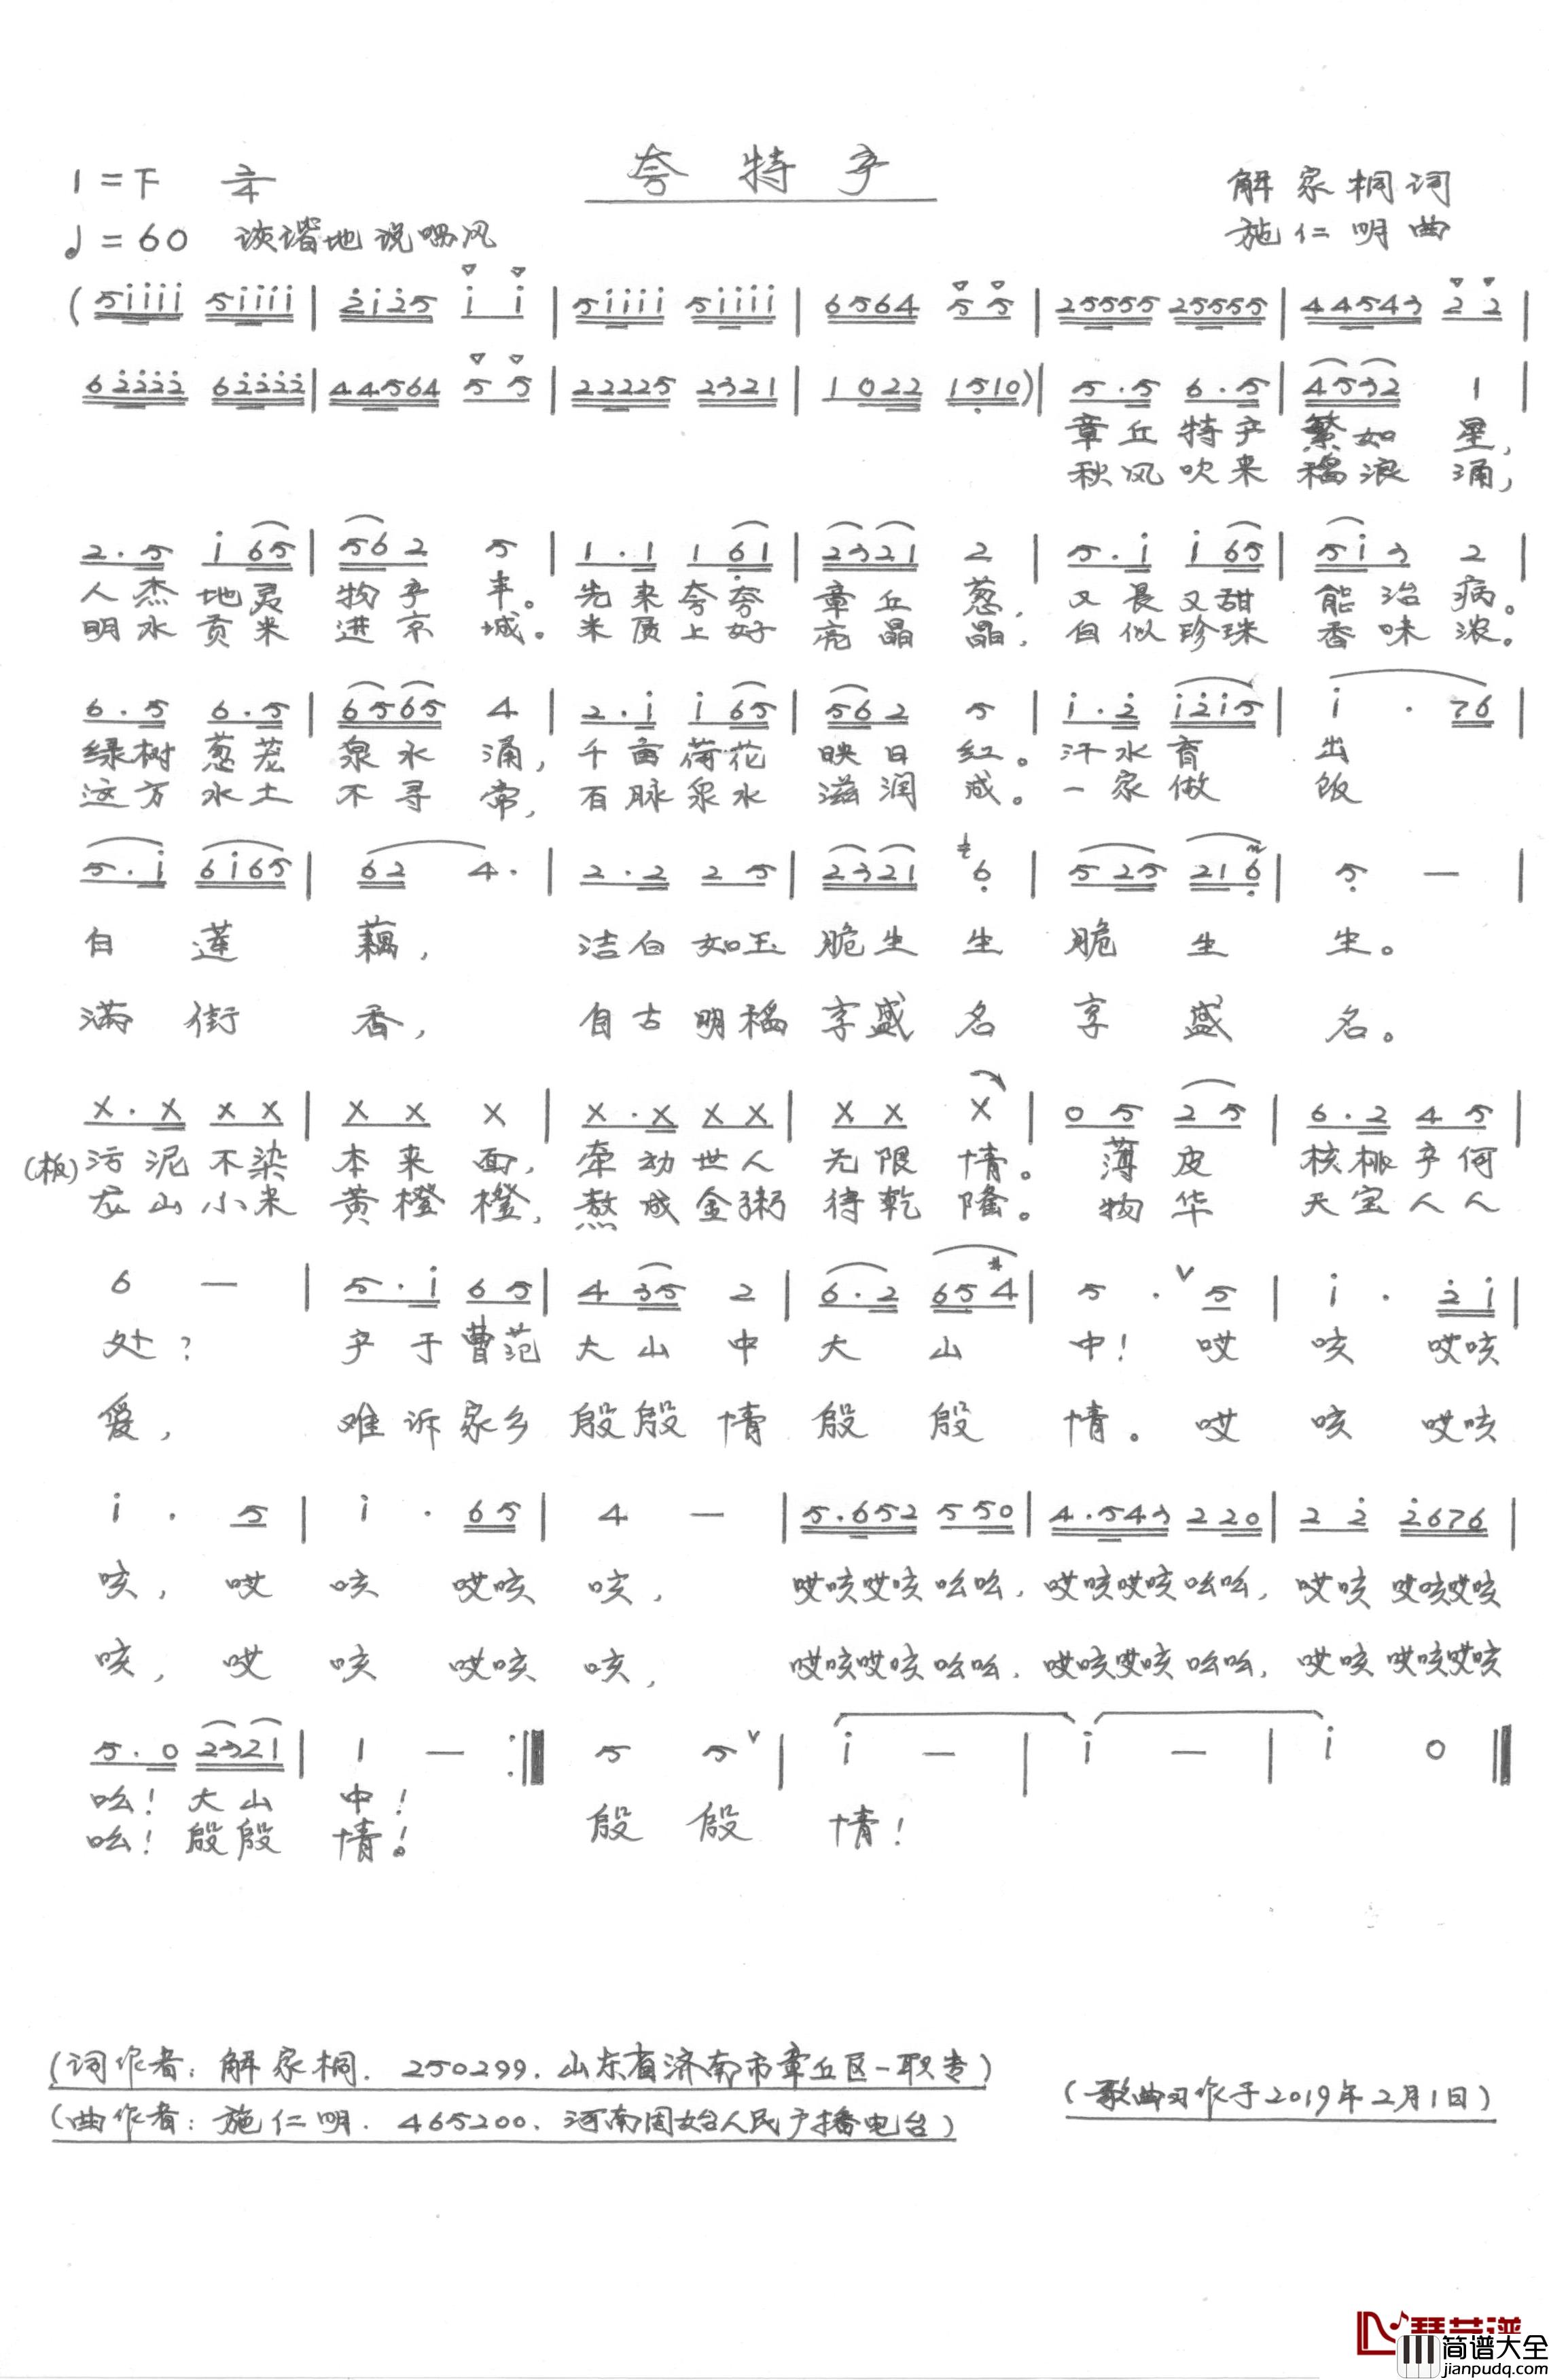 夸特产
1=F 2/4
解家桐词
♩=60 诙谐地说唱风
施仁明曲
(5i̇i̇i̇i̇ 5i̇i̇i̇i̇ | 2̇i̇2̇5 i̇ i̇ | 5i̇i̇i̇i̇ 5i̇i̇i̇i̇ | 6564 5 5 | 25555 25555 | 44543 2 2 |
62̇2̇2̇2̇ 62̇2̇2̇2̇ | 44564 5 5 | 22225 2321 | 1 022 15̣10) | 5·5 6·5 | 4532 1 |
章丘特产 繁如 星,
秋风吹来 稻浪 涌,
2·5 i̇ 65 | 562 5 | 1·1 1 6̣1 | 2321 2 | 5·i̇ i̇ 65 | 5i̇3 2 |
人杰地灵 物产 丰。 先来夸夸 章丘 葱, 又长又甜 能治 病。
明水贡米 进京 城。 米质上好 亮晶 晶, 白似珍珠 香味 浓。
6·5 6·5 | 6565 4 | 2·i̇ i̇ 65 | 562 5 | i̇·2̇ i̇2̇i̇5 | i̇ · 76 |
绿树葱茏 泉水 涌, 千亩荷花 映日 红。 汗水育 出
这方水土 不寻 常, 百脉泉水 滋润 成。 一家做 饭
5·i̇ 6i̇65 | 62 4· | 2·2 2 5 | 2321 ♮6̣ | 5 25 216̣ | 5̣ — |
白 莲 藕, 洁白如玉 脆生 生 脆 生 生。
满 街 香, 自古明稻 享盛 名 享 盛 名。
X·X X X | X X X | X·X X X | X X X | 0 5 2 5 | 6·2 4 5 |
(板) 污泥不染 本来 面, 牵动世人 无限 情。 薄 皮 核桃产何
龙山小米 黄橙 橙, 熬成金粥 待乾 隆。 物 华 天宝人人
6 — | 5·i̇ 6 5 | 4 35 2 | 6·2 65#4 | 5 · ˅5 | i̇ · 2̇i̇ |
处? 产于曹范 大山 中 大 山 中! 哎 咳 哎咳
爱, 难诉家乡 殷殷 情 殷 殷 情。 哎 咳 哎咳
i̇ · 5 | i̇ · 65 | 4 — | 5·652 550 | 4·543 220 | 2 2̇ 2̇676 |
咳, 哎 咳 哎咳 咳, 哎咳哎咳 吆吆, 哎咳哎咳 吆吆, 哎咳 哎咳哎咳
咳, 哎 咳 哎咳 咳, 哎咳哎咳 吆吆, 哎咳哎咳 吆吆, 哎咳 哎咳哎咳
5·0 2321 | 1 — :‖ 5 5˅ | i̇ — | i̇ — | i̇ 0 ‖
吆! 大山 中! 殷 殷 情!
吆! 殷殷 情!
(词作者: 解家桐. 250299. 山东省济南市章丘区一职专)
(曲作者: 施仁明. 465200. 河南固始人民广播电台)
(歌曲习作于2019年2月1日)
简谱大全
jianpudq.com